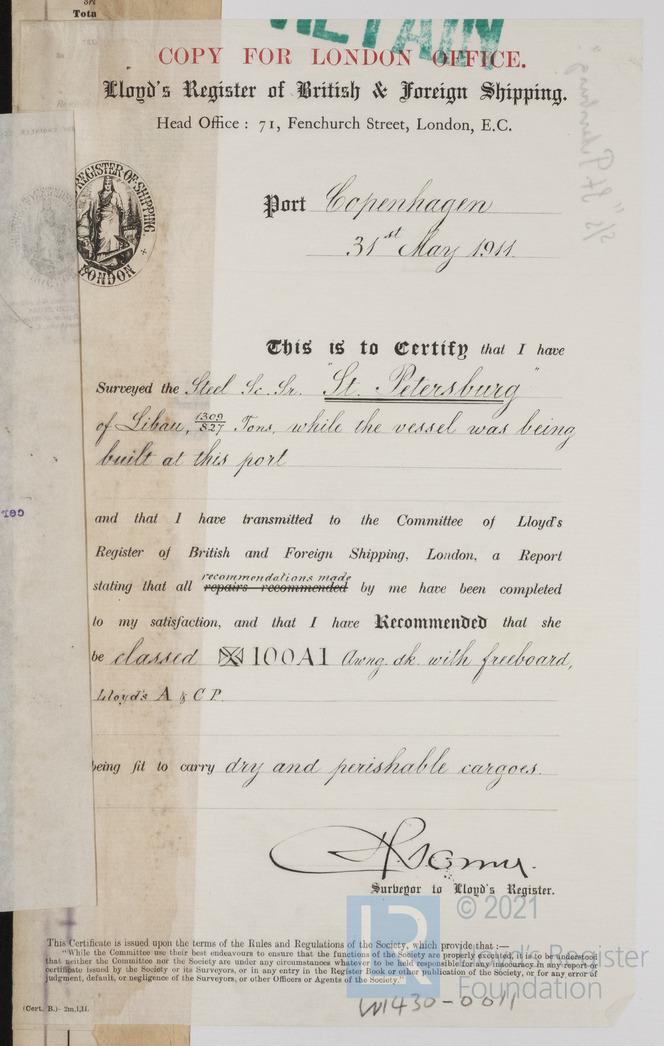 Tota
RETAIN
COPY FOR LONDON OFFICE.
Lloyd's Register of British & Foreign Shipping.
Head Office: 71, Fenchurch Street, London, E.C.
REGISTER OF SHIPPING.
LONDON
Port Copenhagen
31st May 1911.
s/s "St Petersburg"
This is to Certify that I have
Surveyed the Steel Sc. Sr. "St. Petersburg"
of Libau, 1309/827 Tons, while the vessel was being
built at this port
and that I have transmitted to the Committee of Lloyd's
Register of British and Foreign Shipping, London, a Report
recommendations made
stating that all repairs recommended by me have been completed
to my satisfaction, and that I have Recommended that she
be classed 100A1 Awng. dk. with freeboard,
Lloyd's A & C P.
being fit to carry dry and perishable cargoes.
Surveyor to Lloyd's Register.
This Certificate is issued upon the terms of the Rules and Regulations of the Society, which provide that:—
"While the Committee use their best endeavours to ensure that the functions of the Society are properly executed, it is to be understood
that neither the Committee nor the Society are under any circumstances whatever to be held responsible for any inaccuracy in any report or
certificate issued by the Society or its Surveyors, or in any entry in the Register Book or other publication of the Society, or for any error of
judgment, default, or negligence of the Surveyors, or other Officers or Agents of the Society."
(Cert. B.)- 2m,1,11.
LR
© 2021
Lloyd's Register
Foundation
W1430-0011